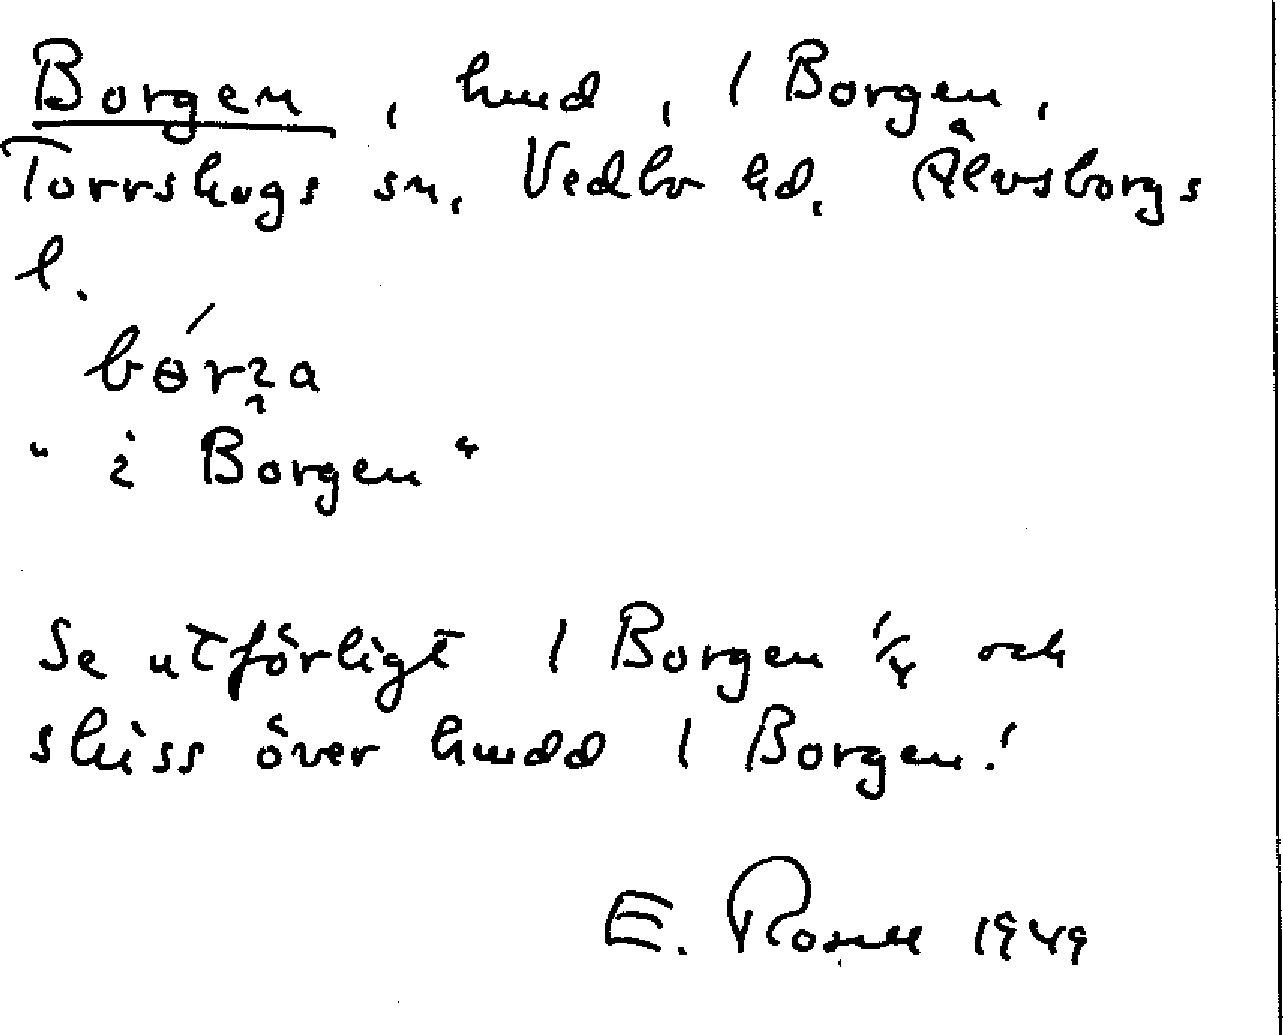 Borgen, hmd, 1 Borgen,
Torrskogs sn, Vedbo hd, Älvsborgs
l.
"i Borgen"
Se utförligt 1 Borgen 1/4 och
skiss över hmdd 1 Borgen!
E. Rosell 1949